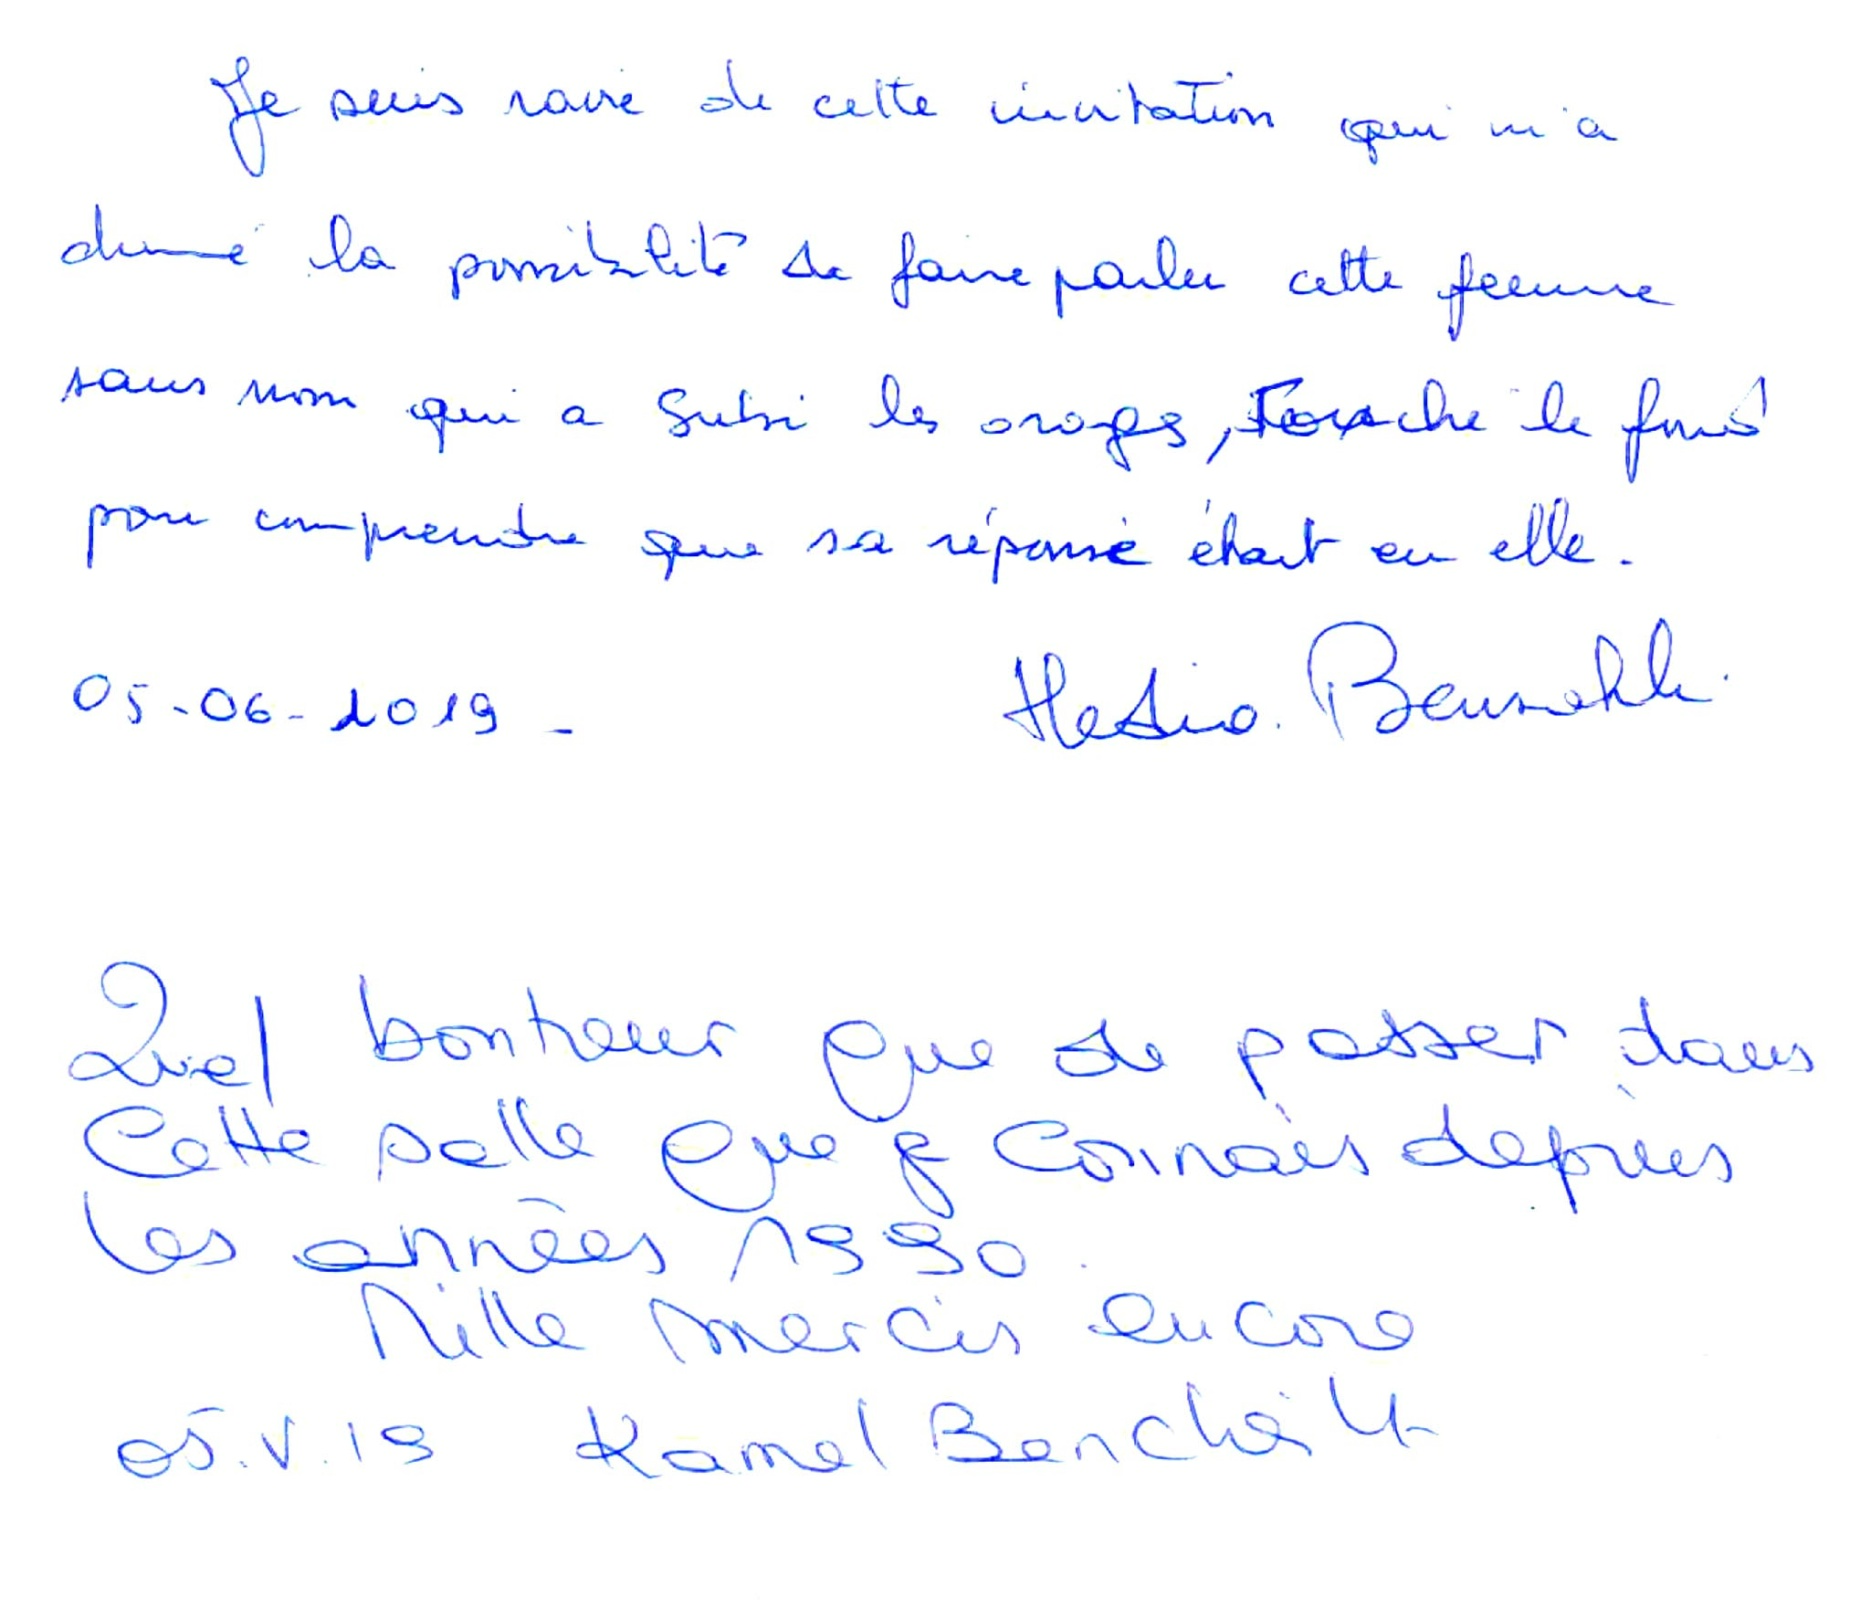 Je suis ravie de cette invitation qui m'a
donné la possibilité de faire parler cette femme
sans nom qui a subi les orages, touché le fond
pour comprendre que sa réponse était en elle.
05-06-2019 - Hedia. Bensahli.
Quel bonheur que de passer dans
Cette salle que je connais depuis
les années 1990.
Mille mercis encore
05.V.19 Kamel Bencheikh